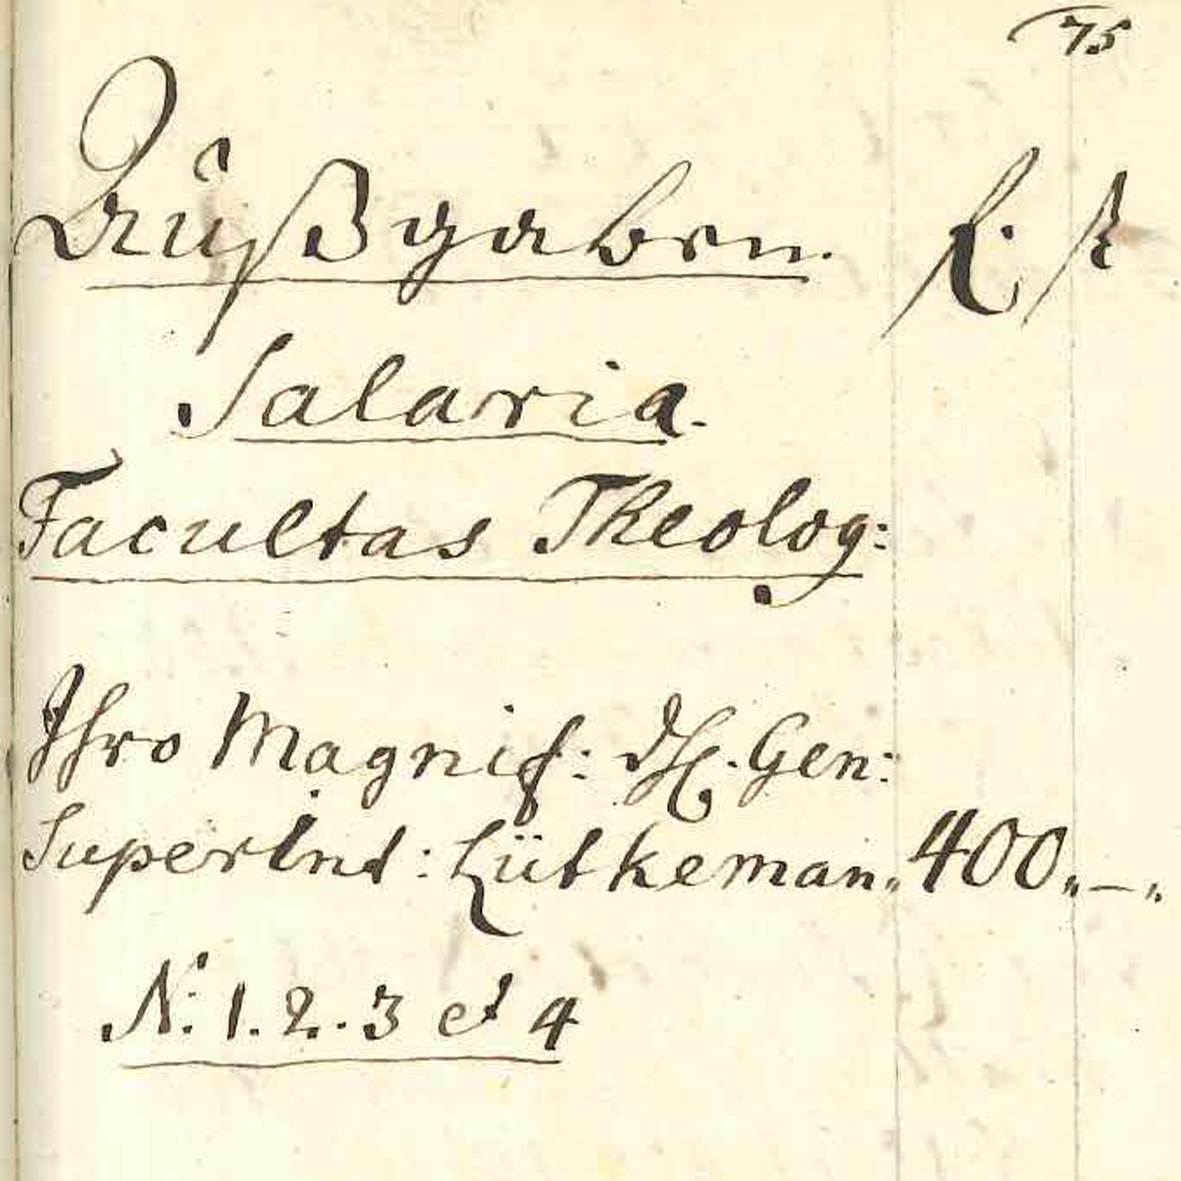 75
Außgaben. R. ß
Salaria.
Facultas Theolog:
Ihro Magnif: Hℓ. Gen:
SuperInt: Lütkeman„ 400„—„
N: 1. 2. 3 et 4